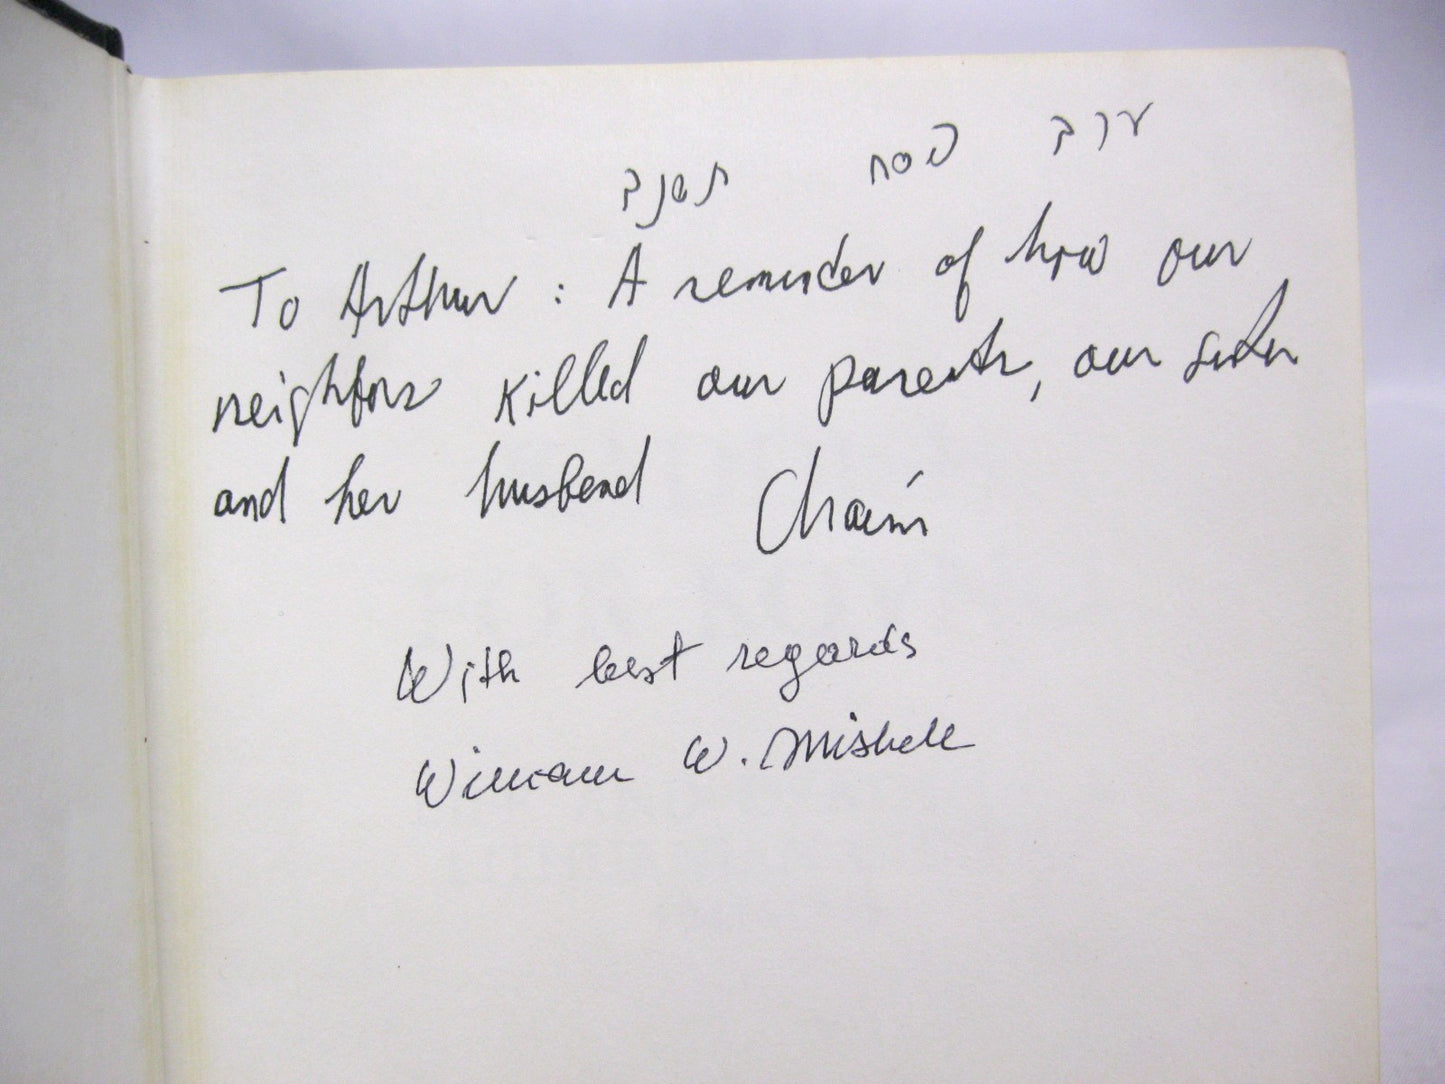 ערב פסח תשנב
To Arthur : A reminder of how our
neighbors killed our parents, our sister
and her husbend Chaim
With best regards
William W. Mishell